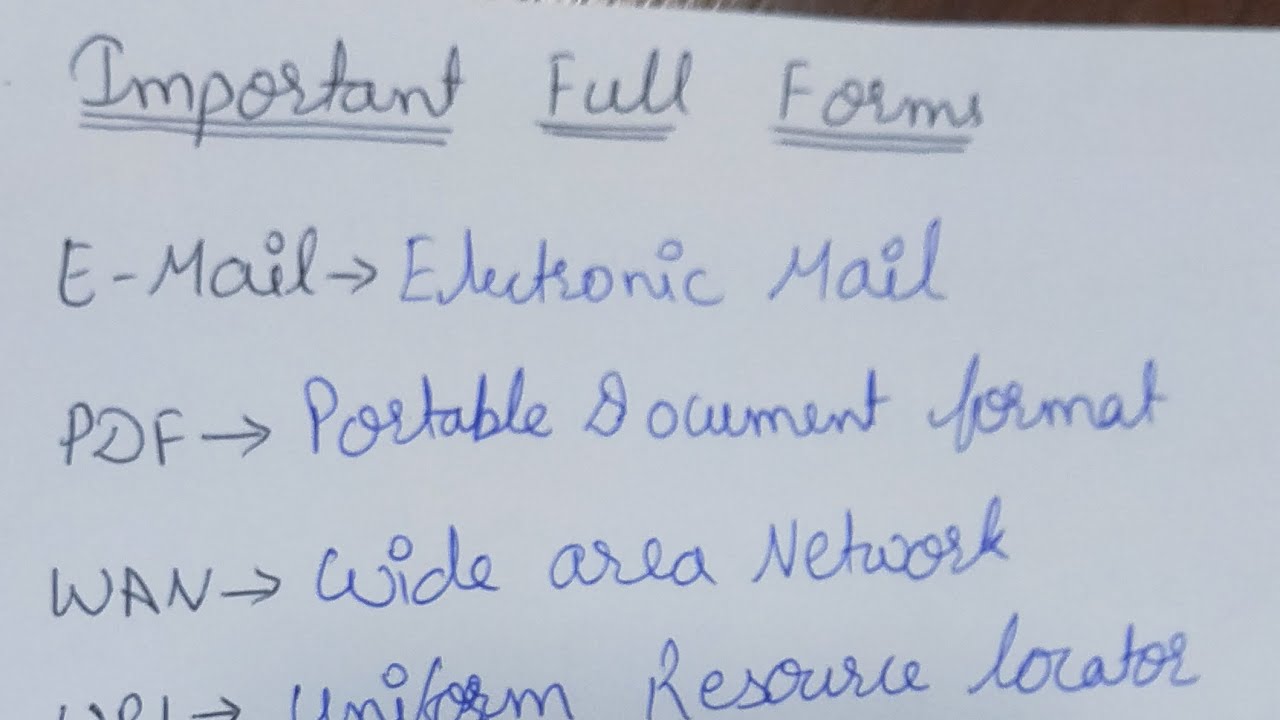 Important Full Forms
E-Mail → Electronic Mail
PDF → Portable Document format
WAN → Wide area Network
URL → Uniform Resource locator